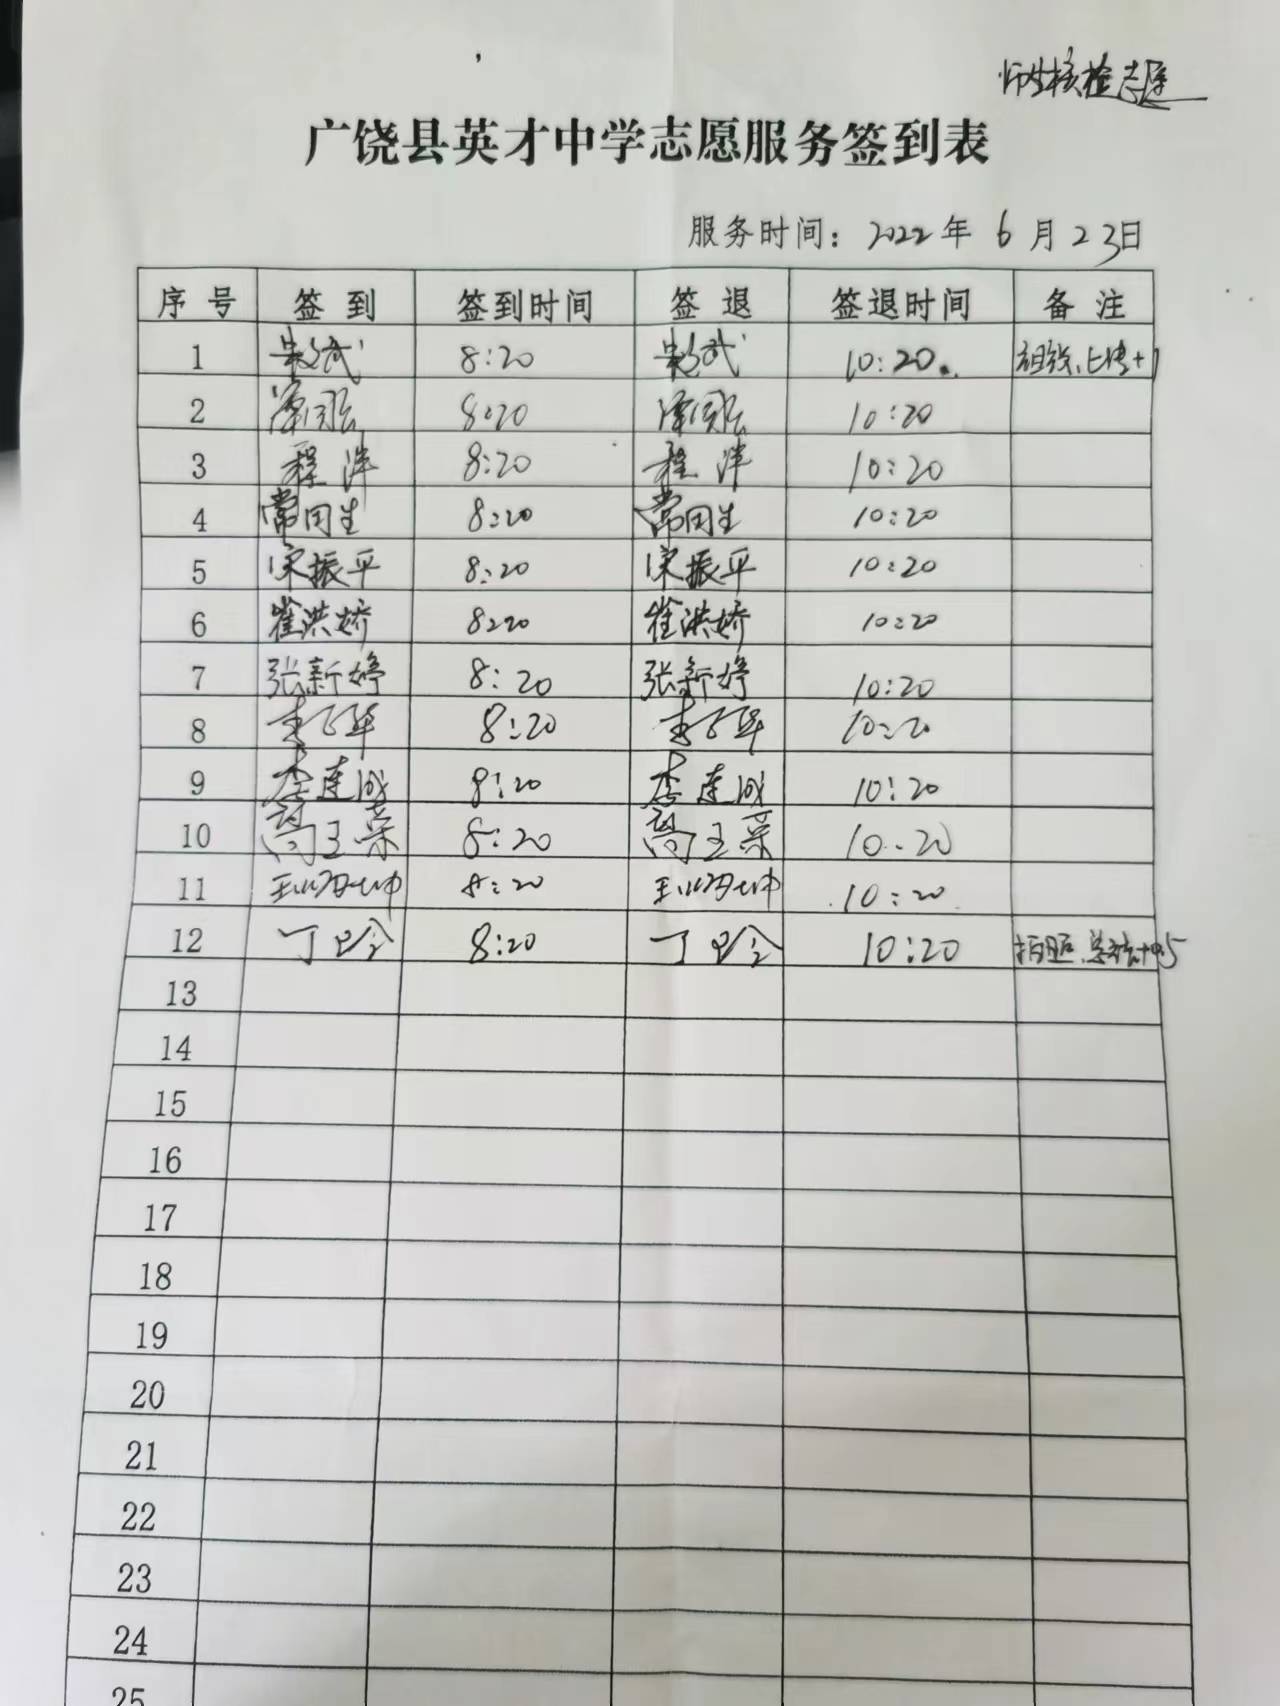 师生核检志愿
广饶县英才中学志愿服务签到表
服务时间：2022年 6月23日
序号 签到 签到时间 签退 签退时间 备注
1 8:20 10:20 组织、上传+1
2 8:20 10:20
3 程洋 8:20 程洋 10:20
4 常田生 8:20 常田生 10:20
5 宋振平 8:20 宋振平 10:20
6 崔洪娇 8:20 崔洪娇 10:20
7 张新婷 8:20 张新婷 10:20
8 8:20 10:20
9 李连成 8:20 李连成 10:20
10 8:20 10:20
11 8:20 10:20
12 8:20 10:20 拍照、+0.5
13
14
15
16
17
18
19
20
21
22
23
24
25